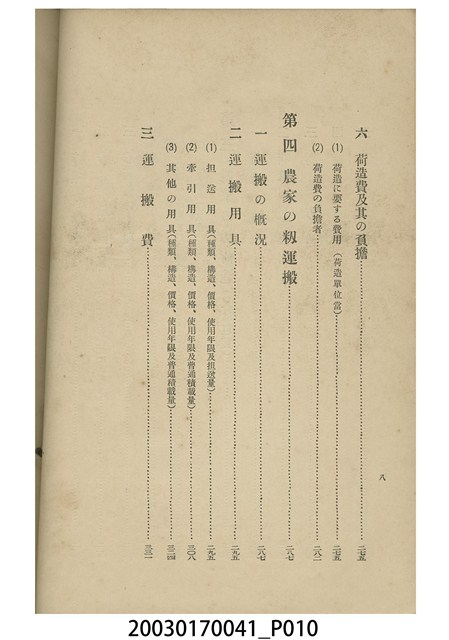 六 荷造費及其の負擔……二七五
(1) 荷造に要する費用（荷造單位當）……二七五
(2) 荷造費の負擔者……二八二
第四 農家の籾運搬……二八七
一 運搬の概況……二八七
二 運搬用具……二九五
(1) 担送用具（種類、構造、價格、使用年限及担送量）……二九五
(2) 牽引用具（種類、構造、價格、使用年限及普通積載量）……三〇八
(3) 其他の用具（種類、構造、價格、使用年限及普通積載量）……三二四
三 運搬費……三三一
八
20030170041_P010